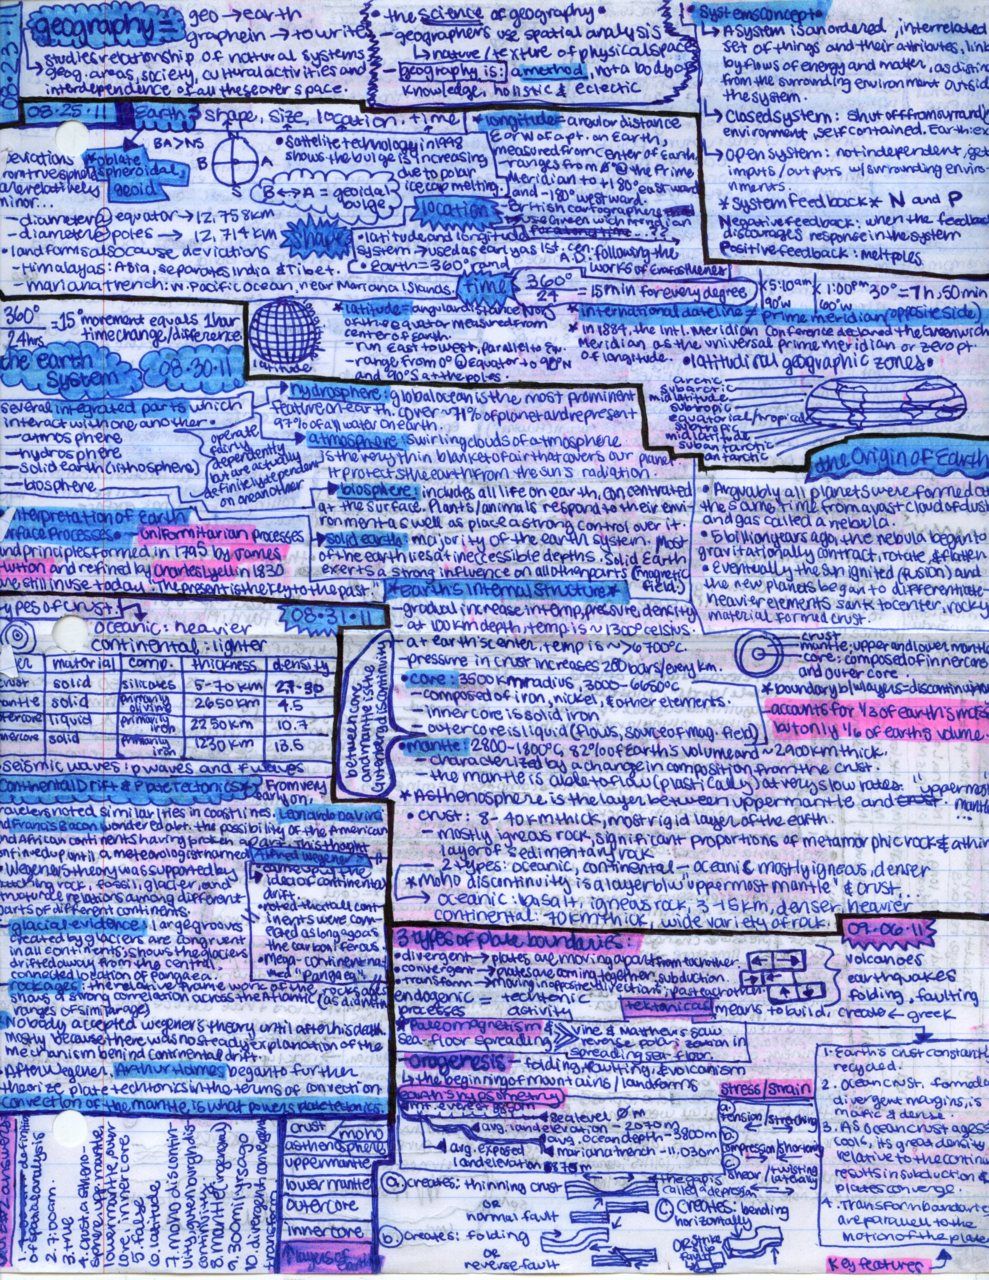 08·23·11
geography =
geo → earth
graphein → to write
↳ studies relationship of natural systems
↳ geog. areas, society, cultural activities and
interdependence of all these over space.
• the science of geography •
— geographers use spatial analysis
↳ nature / texture of physical space
— geography is: a method, not a body of
knowledge, holistic & eclectic
• systems concept •
→ A system is an ordered, interrelated
set of things and their attributes, link
by flows of energy and matter, as distin
from the surrounding environment outside
the system.
→ Closed system: shut off from surround
environment, self contained. Earth: ex
→ Open system: not independent, get
inputs/outputs w/ surrounding environ-
ments.
* system feedback * N and P
Negative feedback: when the feedback
discourages response in the system
Positive feedback: melt poles
08·25·11
Earth: shape, size, location, time
BA > NS
B A
S
• satellite technology in 1998
shows the bulge is increasing
due to polar
ice cap melting.
*oblate
spheroidal
geoid
are relatively
minor...
B ↔ A = geoidal
bulge
— diameter @ equator → 12,758 km
— diameter @ poles → 12,714 km
• landforms also cause deviations
— Himalayas: Asia, separates India & Tibet.
— mariana trench: w. Pacific Ocean, near Mariana Islands.
* longitude = angular distance
E or W of a pt. on Earth,
measured from center of Earth.
— ranges from 0° @ the Prime
Meridian to +180° eastward
and -180° westward.
— British cartographers
use Greenwich meridian
location
shape
• latitude and longitude
system → used as early as 1st. cen. A.D. following the
works of Eratosthenes
• Earth = 360° and
time
360°
24
= 15 min for every degree
5:10am
90°W
1:00pm
60°W
30° = 7h, 50min
360°
24hrs
= 15° movement equals 1 hour
time change/difference
latitude
* latitude = angular distance N or S
of the equator measured from
center of Earth
— run east to west, parallel to Eq.
— range from 0° @ Equator to 90°N
and 90°S at the poles.
* international date line ≠ prime meridian (opposite side)
* in 1884, the Intl. Meridian Conference declared the Greenwich
Meridian as the universal prime meridian or zero pt
of longitude.
• latitudinal geographic zones •
arctic
subarctic
midlatitude
subtropic
equatorial/tropical
subtropic
midlatitude
subantarctic
antarctic
the earth
system
08·30·11
several integrated parts which
interact with one another •
— atmosphere
— hydrosphere
— solid earth (lithosphere)
— biosphere
operate
fairly in-
dependently
but are actually
definitely dependent
on one another
▸ hydrosphere: global ocean is the most prominent
feature on earth. cover ~71% of planet and represent
97% of all water on earth.
▸ atmosphere: swirling clouds of atmosphere
is the very thin blanket of air that covers our planet
It protects the earth from the sun's radiation.
▸ biosphere: includes all life on earth, concentrated
at the surface. Plants/animals respond to their envi
ronment as well as place a strong control over it.
▸ solid earth: majority of the earth system. Most
of the earth lies at inaccessible depths. Solid Earth
exerts a strong influence on all other parts (magnetic
field)
the Origin of Earth
• Arguably all planets were formed at
the same time from a vast cloud of dust
and gas called a nebula.
• 5 billion years ago, the nebula began to
gravitationally contract, rotate, & flatten
• eventually the sun ignited (fusion) and
the new planets began to differentiate
heavier elements sank to center, rocky
material formed crust.
• Interpretation of Earth
surface Processes • Uniformitarian processes
and principles formed in 1795 by James
Hutton and refined by Charles Lyell in 1830
we still use today. "the present is the key to the past"
types of crust:
oceanic: heavier
continental: lighter
08·31·11
material comp. thickness density
crust solid silicates 5-70 km
mantle solid primarily olivine 2650 km 4.5
outer core liquid primarily iron 2250 km 10.7
inner core solid primarily iron 1230 km 13.5
seismic waves: p waves and
between core
and mantle is the
Gutenberg discontinuity
* earth's internal structure *
— gradual increase in temp, pressure, density
at 100 km depth, temp is ~1300° celsius.
— at earth's center, temp is ~>6700°C.
— pressure in crust increases 280 bars/every km.
• core: 3500 km radius, 3000-6650°C
— composed of iron, nickel, & other elements.
— inner core is solid iron
— outer core is liquid (flows, source of mag. field)
• mantle: 2800-1800°C 82% of Earth's volume and ~2900 km thick.
— characterized by a change in composition from the crust.
— the mantle is able to flow (plastically) at very slow rates
* Asthenosphere is the layer between upper mantle and "uppermost mantle"
• crust: 8-40 km thick, most rigid layer of the earth
— mostly igneous rock, significant proportions of metamorphic rock & a thin
layer of sedimentary rock
— 2 types: oceanic, continental — oceanic mostly igneous, denser
* Moho discontinuity is a layer b/w "uppermost mantle" & crust.
→ oceanic: basalt, igneous rock, 3-15 km, denser, heavier
continental: 70 km thick, wide variety of rock.
crust
mantle: upper and lower mantle
core: composed of inner core
and outer core.
* boundary b/w layers = discontinuit
accounts for 1/3 of earth's mass
but only 1/6 of earth's volume.
Continental Drift & Plate Tectonics
From very
early on,
travelers noted similarities in coastlines. Leonardo da Vinci
and Francis Bacon wondered abt. the possibility of the American
and African continents having broken apart. This thought
continued up until a meteorologist named Alfred Wegener
Wegener's theory was supported by
matching rock, fossil, glacier, and
structural relations among different
parts of different continents.
came up w/ the
idea of continental
drift.
• noted that all cont-
inents were conn-
ected as long ago as
the carboniferous.
• Mega-continent na-
med "Pangaea"
glacial evidence: large grooves
created by glaciers are congruent
in all continents; shows the glaciers
drifted away from the central
connected location of pangaea.
rock ages: the relative framework of the rocks also
shows a strong correlation across the Atlantic (as did mtn
ranges of similar age)
Nobody accepted wegener's theory until after his death.
mostly because there was no steady explanation of the
mechanism behind continental drift.
After Wegener, Arthur Holmes began to further
theorize plate techtonics in the terms of convection.
Convection of the mantle, is what powers plate tectonics.
09·06·11
3 types of plate boundaries:
• divergent → plates are moving apart from each other.
• convergent → plates are coming together, subduction.
• transform → moving in opposite directions, past each other.
endogenic = techtonic
processes activity
tektonical means to build, create ← greek
volcanoes
earthquakes
folding, faulting
* Paleomagnetism &
sea-floor spreading
vine & Matthews saw
reverse polarization in
spreading sea-floor.
Orogenesis — folding, faulting, & volcanism
↳ the beginning of mountains / landforms
earth's hypsometry
mt. everest 8850m
sea level 0 m
avg. land elevation — 2070 m
avg. ocean depth -3800m
mariana trench -11,030m
avg. exposed
land elevation 875 m
stress/strain
a. tension/stretching
b. compression/shortening
c. shear/twisting
/laterally
a. creates: thinning crust
OR
normal fault
b. creates: folding
OR
reverse fault
the gap is
called a depression
c. creates: bending
horizontally
OR strike
slip
fault
1. Earth's crust constant
recycled.
2. Ocean crust, formed a
divergent margins, is
mafic & dense.
3. As ocean crust ages
cools, its great density
relative to the contine
results in subduction
plates converge.
4. Transform boundaries
are parallel to the
motion of the plates
key features
quiz 2 answers
of spatial analysis
2. 7:00am.
3. true
4. crust, astheno-
sphere, upper mantle,
lower mantle, outer
core, inner core
5. false
6. latitude
7. moho discontin-
uity, gutenburg dis-
continuity
8. mantle (in general)
9. 300 mil yrs ago
10. divergent, convergent,
transform
crust
moho
asthenosphere
upper mantle
lower mantle
outer core
inner core
↑ layers of Earth